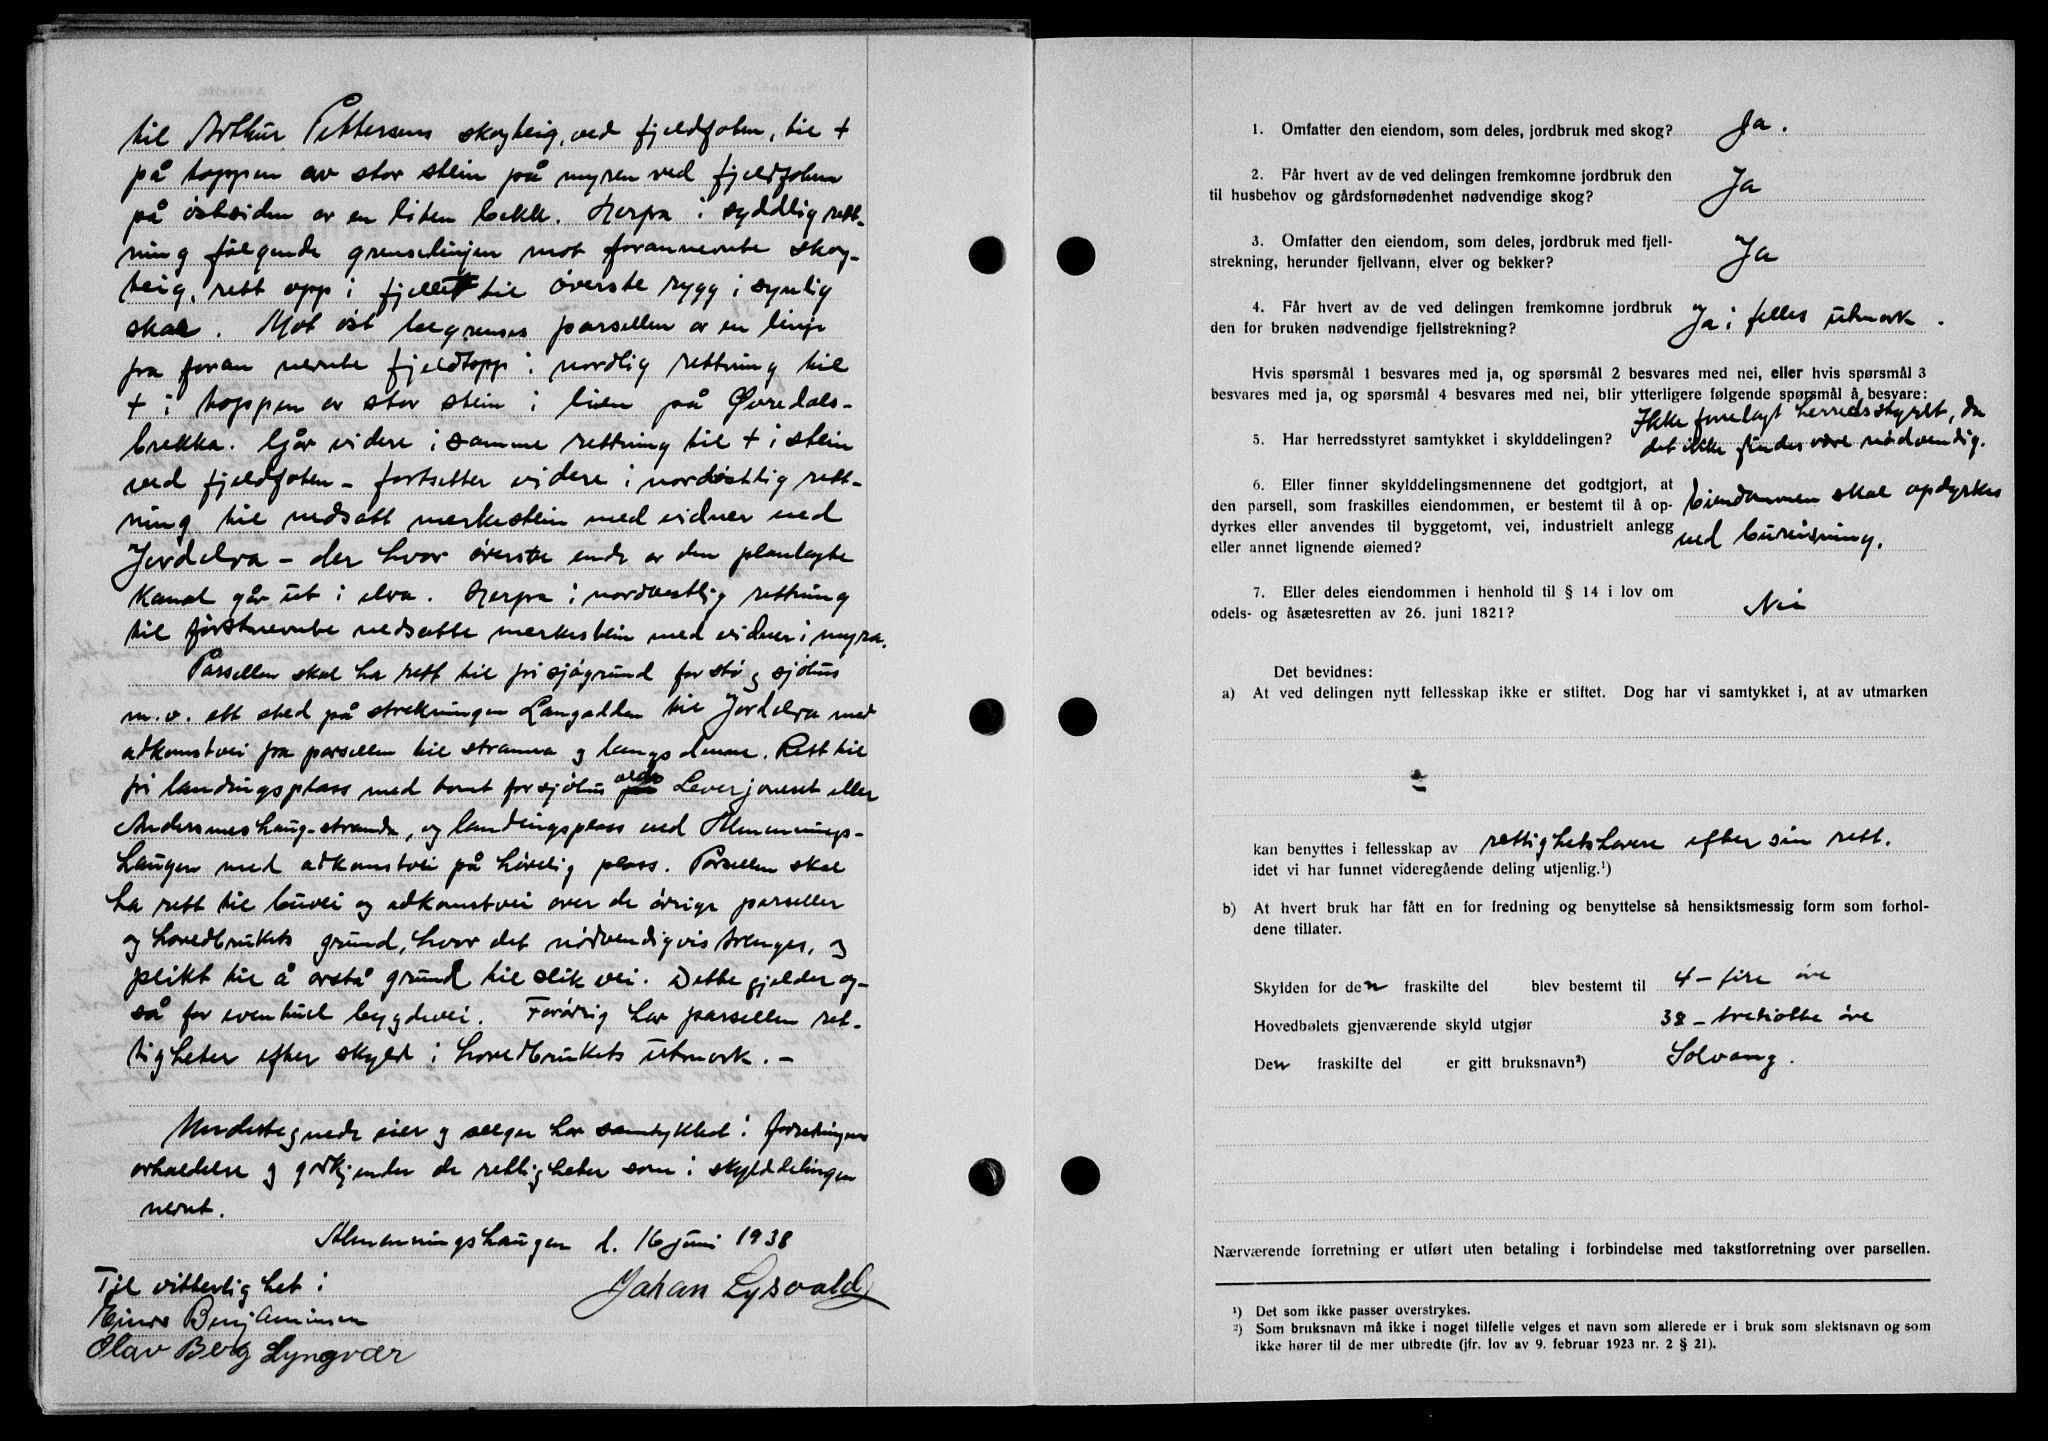 til Arthur Pettersens skogteig, ved fjeldfoten, til +
på toppen av stor stein på myren ved fjeldfoten
på östsiden av en liten bekk. Herfra i syddlig rett-
ning følgende grenselinjen mot forannevnte skog-
teig, rett opp i fjellet til överste rygg i synlig
skar. Mot öst begrenses parsellen av en linje
fra foran nevnte fjeldtopp i nordlig rettning til
+ i toppen av stor stein i lien på Øvredals-
brekka. Går videre i samme rettning til + i stein
ved fjeldfoten - fortsetter videre i nordöstlig rett-
ning til nedsatt merkestein med vidner ved
Jordelva - der hvor överste ende av den planlagte
kanal går ut i elva. Herfra i nordvestlig rettning
til förstnevnte nedsatte merkestein med vidner i myra.
Parsellen skal ha rett til fri sjögrund for stö og sjöhus
m.v. ett sted på strekningen Langodden til Jordelva med
adkomstvei fra parsellen til stranna og langs denne. Rett til
fri landingsplass med tomt for sjöhus ved Leverjoneset eller
Andersneshaug-stranda, og landingsplass ved Almennings-
haugen med adkomstvei på hövelig plass. Parsellen skal
ha rett til buvei og adkomstvei over de övrige parseller
og hovedbrukets grund, hvor det nödvendigvis trenges, og
plikt til å avstå grund til slik vei. Dette gjelder og-
så for eventuel bygdevei. Forövrig har parsellen ret-
tigheter efter skyld i hovedbrukets utmark. -
Undertegnede eier og selger har samtykked i forretningens
avholdelse og godkjender de rettigheter som i skylddelingen
nevnt.
Almenningshaugen d. 16 juni 1938
Til vitterlighet:
Johan Lysvold
Einar Benjaminsen
Olav Berg Lyngvær
1. Omfatter den eiendom, som deles, jordbruk med skog? Ja.
2. Får hvert av de ved delingen fremkomne jordbruk den
til husbehov og gårdsfornødenhet nødvendige skog? Ja
3. Omfatter den eiendom, som deles, jordbruk med fjell-
strekning, herunder fjellvann, elver og bekker? Ja
4. Får hvert av de ved delingen fremkomne jordbruk
den for bruken nødvendige fjellstrekning? Ja i felles utmark.
Hvis spørsmål 1 besvares med ja, og spørsmål 2 besvares med nei, eller hvis spørsmål 3
besvares med ja, og spørsmål 4 besvares med nei, blir ytterligere følgende spørsmål å besvare:
Ikke forelagt herredsstyret, da
5. Har herredsstyret samtykket i skylddelingen? det ikke findes være nödvendig.
6. Eller finner skylddelingsmennene det godtgjort, at
den parsell, som fraskilles eiendommen, er bestemt til å op- Eiendommen skal opdyrkes
dyrkes eller anvendes til byggetomt, vei, industrielt anlegg
eller annet lignende øiemed? ved bureisning.
7. Eller deles eiendommen i henhold til § 14 i lov om
odels- og åsætesretten av 26. juni 1821? Nei
Det bevidnes:
a) At ved delingen nytt fellesskap ikke er stiftet. Dog har vi samtykket i, at av utmarken
kan benyttes i fellesskap av rettighetshavere efter sin rett.
idet vi har funnet videregående deling utjenlig.¹)
b) At hvert bruk har fått en for fredning og benyttelse så hensiktsmessig form som forhol-
dene tillater.
Skylden for den fraskilte del blev bestemt til 4 - fire öre
Hovedbølets gjenværende skyld utgjør 38 - trettiotte öre
Den fraskilte del er gitt bruksnavn²) Solvang.
Nærværende forretning er utført uten betaling i forbindelse med takstforretning over parsellen.
¹) Det som ikke passer overstrykes.
²) Som bruksnavn må ikke i noget tilfelle velges et navn som allerede er i bruk som slektsnavn og som
ikke hører til de mer utbredte (jfr. lov av 9. februar 1923 nr. 2 § 21).